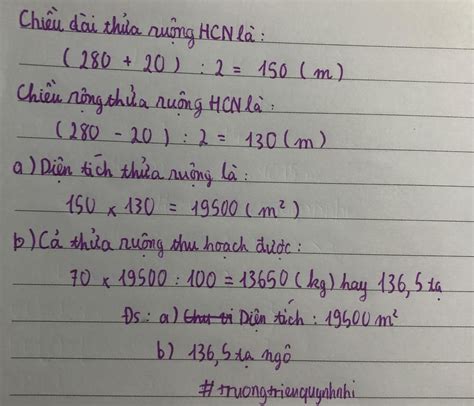 Chiều dài thửa ruộng HCN là:
(280 + 20) : 2 = 150 (m)
Chiều rộng thửa ruộng HCN là:
(280 - 20) : 2 = 130 (m)
a) Diện tích thửa ruộng là:
150 x 130 = 19500 (m²)
b) Cả thửa ruộng thu hoạch được:
70 x 19500 : 100 = 13650 (kg) hay 136,5 tạ
Đs: a) Chu vi Diện tích : 19500 m²
b) 136,5 tạ ngô
#truongtrieuquynhnhi